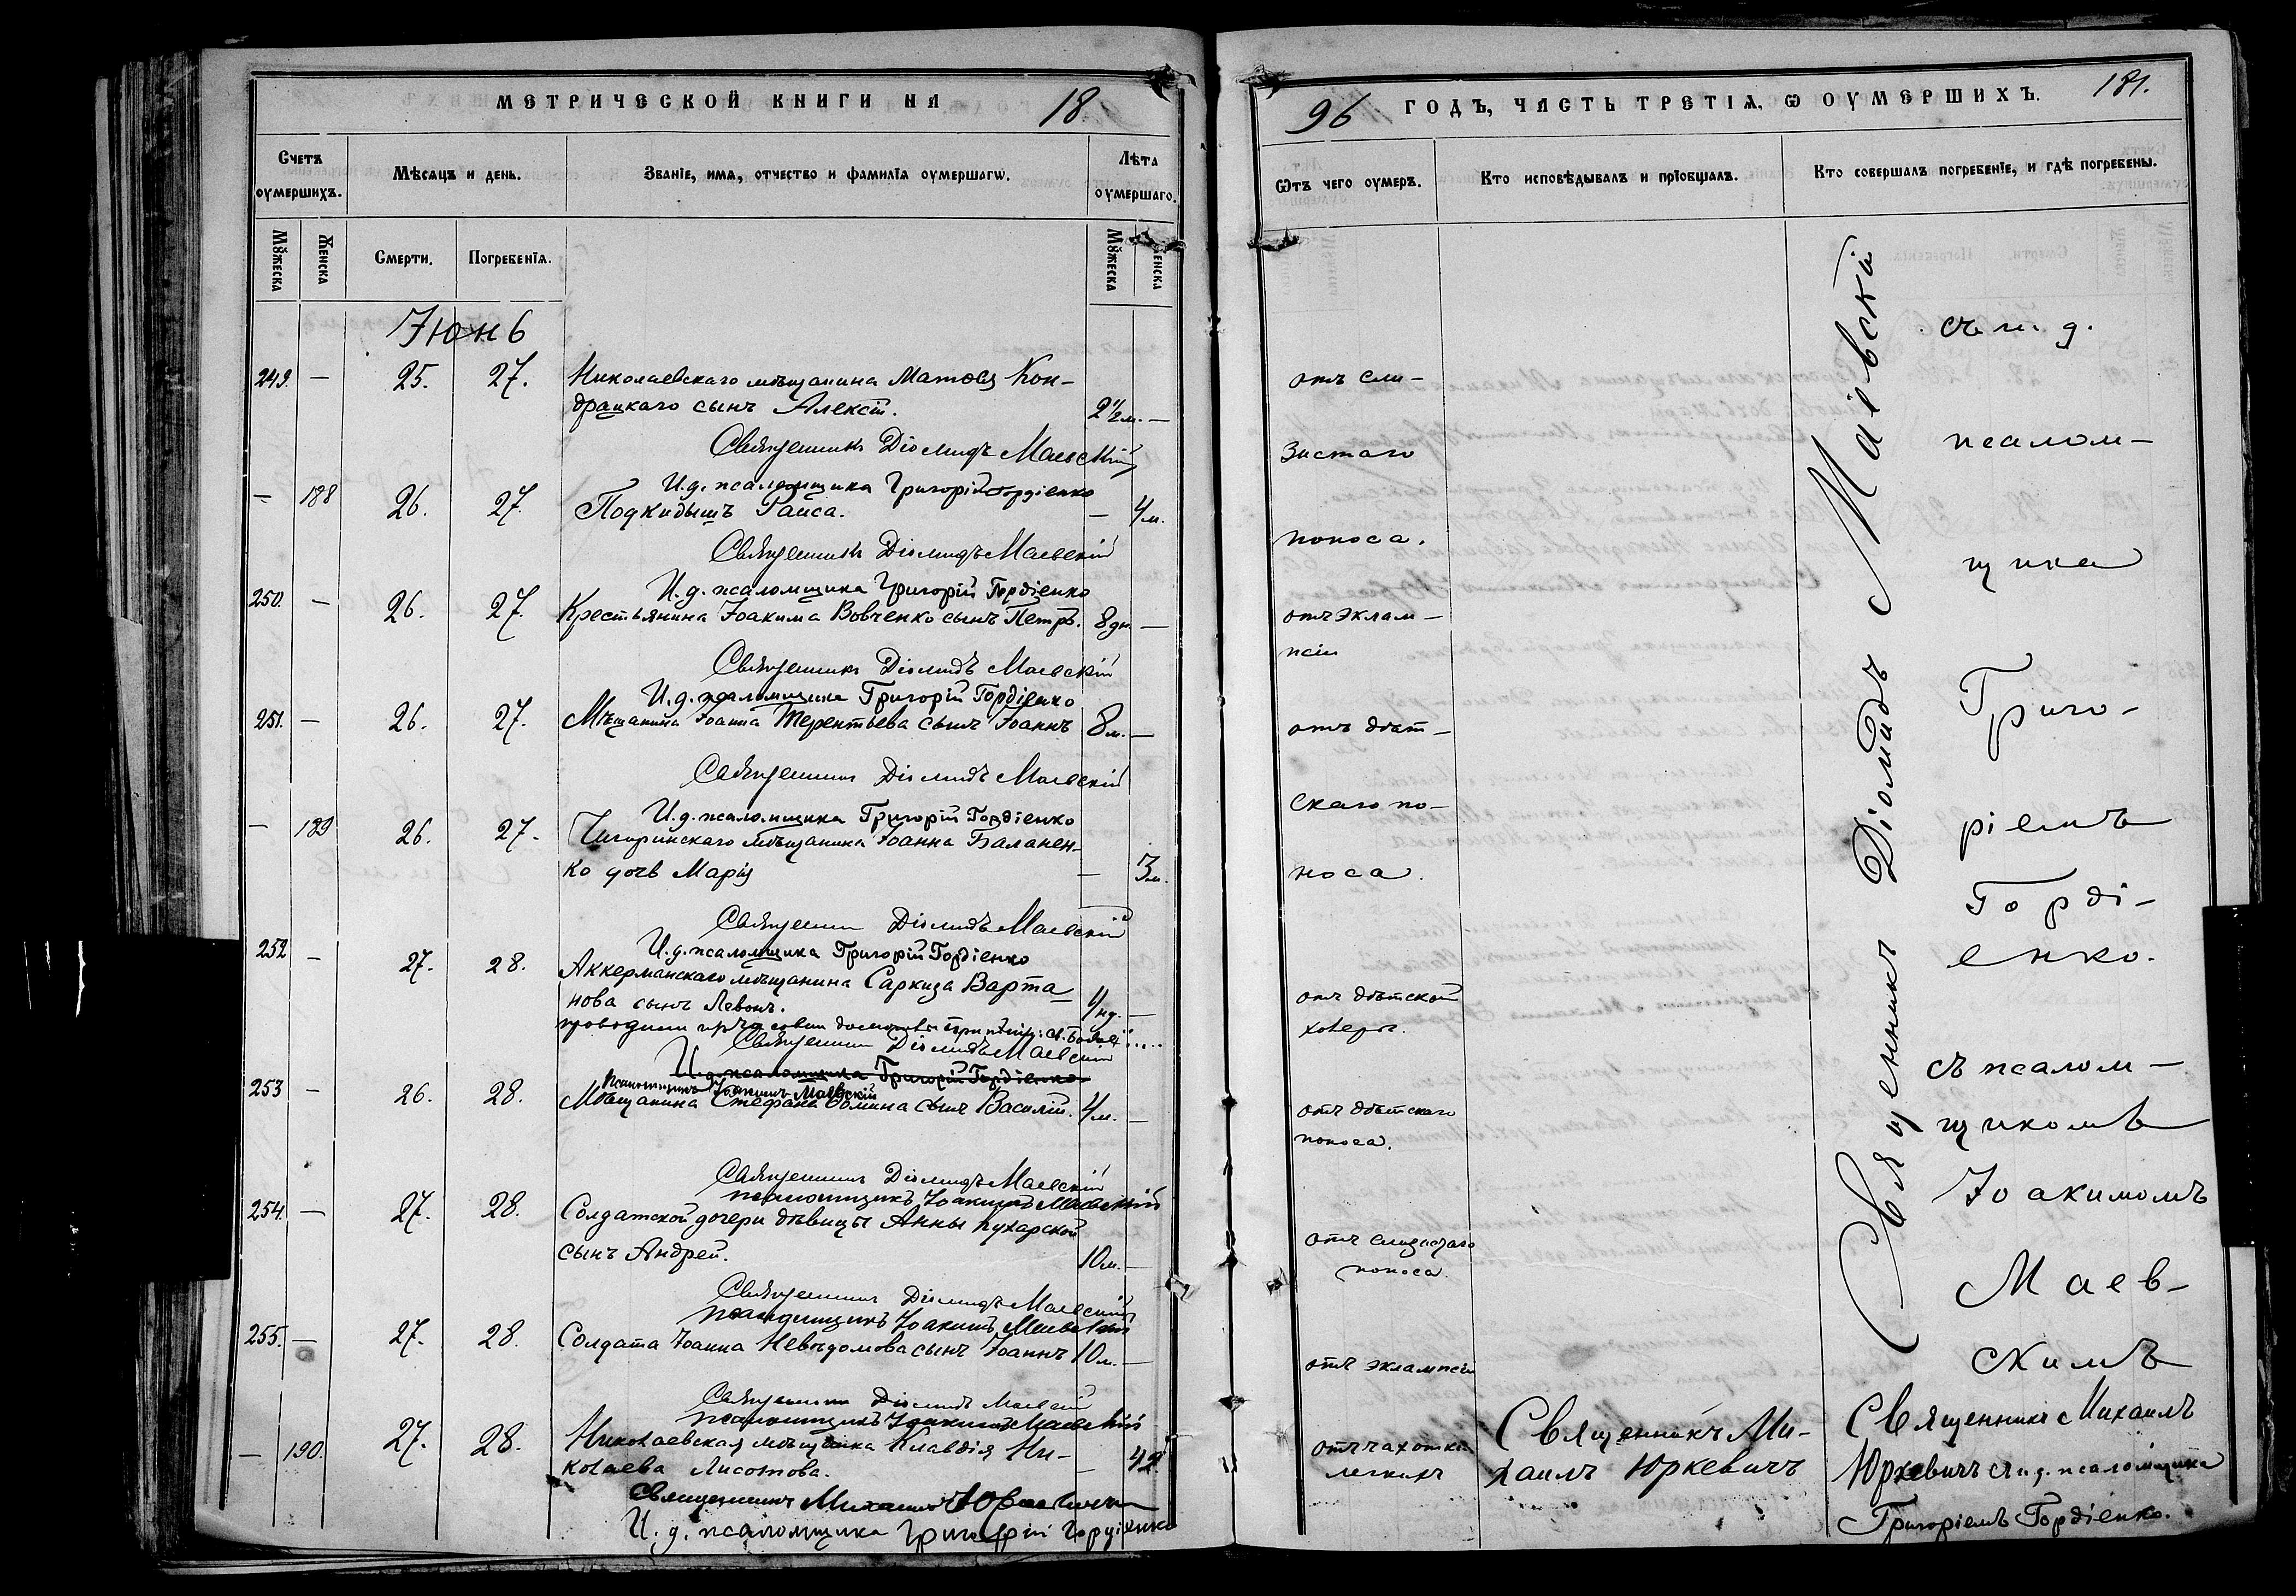 МЕТРИЧЕСКОЙ КНИГИ НА 18
Счетъ оумершихъ.
Мѣсяцъ и день.
Званіе, имя, отчество и фамилія оумершагѡ.
Лѣта оумершаго.
Мꙋжеска
Женска
Смерти.
Погребенїя.
Мꙋжеска
Женска
Іюнь
249. — 25. 27. Николаевскаго мѣщанина Матѳея Кон-
драцкаго сынъ Алексѣй. 2½ м. —
Священникъ Діомидъ Маевскій
И. д. псаломщика Григорій Гордіенко
— 188 26. 27. Подкидышъ Раиса. — 4 м.
Священникъ Діомидъ Маевскій
И. д. псаломщика Григорій Гордіенко
250. — 26. 27. Крестьянина Іоакима Вовченко сынъ Петръ. 8 дн. —
Священникъ Діомидъ Маевскій
И. д. псаломщика Григорій Гордіенко
251. — 26. 27. Мѣщанина Іоанна Терентьева сынъ Іоаннъ 8 м. —
Священникъ Діомидъ Маевскій
И. д. псаломщика Григорій Гордіенко
— 189 26. 27. Чигиринскаго мѣщанина Іоанна Баланен-
ко дочь Марія — 3 м.
Священникъ Діомидъ Маевскій
И. д. псаломщика Григорій Гордіенко
252 — 27. 28. Аккерманскаго мѣщанина Саркиза Варта-
нова сынъ Левонъ. 4 нд. —
Священникъ Діомидъ Маевскій
И. д. псаломщика Григорій Гордіенко
Псаломщикъ Іоакимъ Маевскій
253 — 26. 28. Мѣщанина Стефана Ѳомина сынъ Василій. 4 м. —
Священникъ Діомидъ Маевскій
псаломщикъ Іоакимъ Маевскій
254. — 27. 28. Солдатской дочери дѣвицы Анны Пухарской
сынъ Андрей. 10 м. —
Священникъ Діомидъ Маевскій
псаломщикъ Іоакимъ Маевскій
255. — 27. 28. Солдата Іоанна Невѣдомова сынъ Іоаннъ 10 м. —
Священникъ Діомидъ Маевскій
псаломщикъ Іоакимъ Маевскій
— 190. 27. 28. Николаевская мѣщанка Клавдія Ни-
колаева Лисотова. — 42
Священникъ Михаилъ Юркевичъ
И. д. псаломщика Григорій Гордіенко
96 ГОДЪ, ЧАСТЬ ТРЕТІЯ, Ѡ ОУМЕРШИХЪ. 181.
Ѿтъ чего оумеръ.
Кто исповѣдывалъ и прїобщалъ.
Кто совершалъ погребенїе, и гдѣ погребены.
отъ сли-
зистаго
поноса.
отъ эклам-
псіи
отъ дѣт-
скаго по-
носа.
отъ дѣтской
холеры.
отъ дѣтскаго
поноса.
отъ слизистаго
поноса.
отъ эклампсіи
отъ чахотки
легкихъ
Священникъ Ми-
хаилъ Юркевичъ
Священникъ Діомидъ Маевскій
съ и. д.
псалом-
щика
Григо-
ріемъ
Горді-
енко.
съ псалом-
щикомъ
Іоакимомъ
Маев-
скимъ
Священникъ Михаилъ
Юркевичъ съ и. д. псаломщика
Григоріемъ Гордіенко.